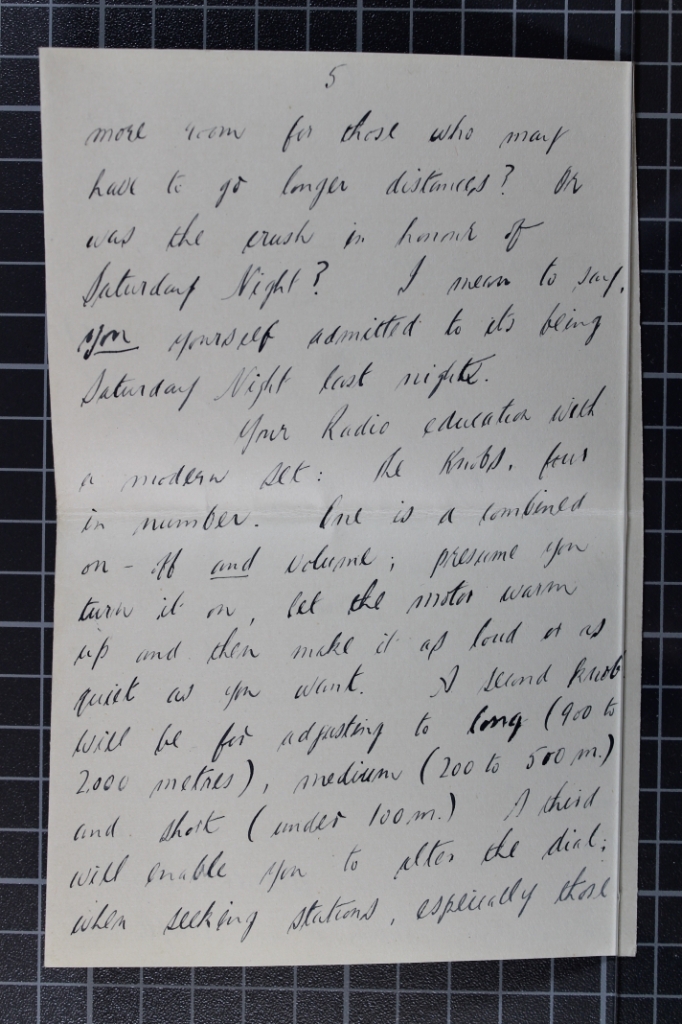 5
more room for those who may
have to go longer distances? Or
was the crush in honour of
Saturday Night? I mean to say,
you yourself admitted to its being
Saturday Night last night.
Your Radio education with
a modern set: the knobs, four
in number. One is a combined
on-off and volume; presume you
turn it on, let the motor warm
up and then make it as loud or as
quiet as you want. A second knob
will be for adjusting to long (900 to
2,000 metres), medium (200 to 500 m.)
and short (under 100 m.) A third
will enable you to alter the dial;
when seeking stations, especially those